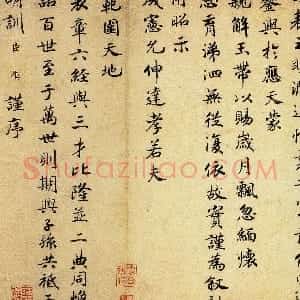 鑾輿於應天蒙
親解玉帶以賜歲月飄忽緬懷
恩育涕泗無從復依故實謹為叙
昭示
成憲允伸達孝若夫
範圍天地
表章六經與三才比隆並二典同
百世至于萬世則期與子孫共祗
訓臣 謹序
Shufaziliao.com